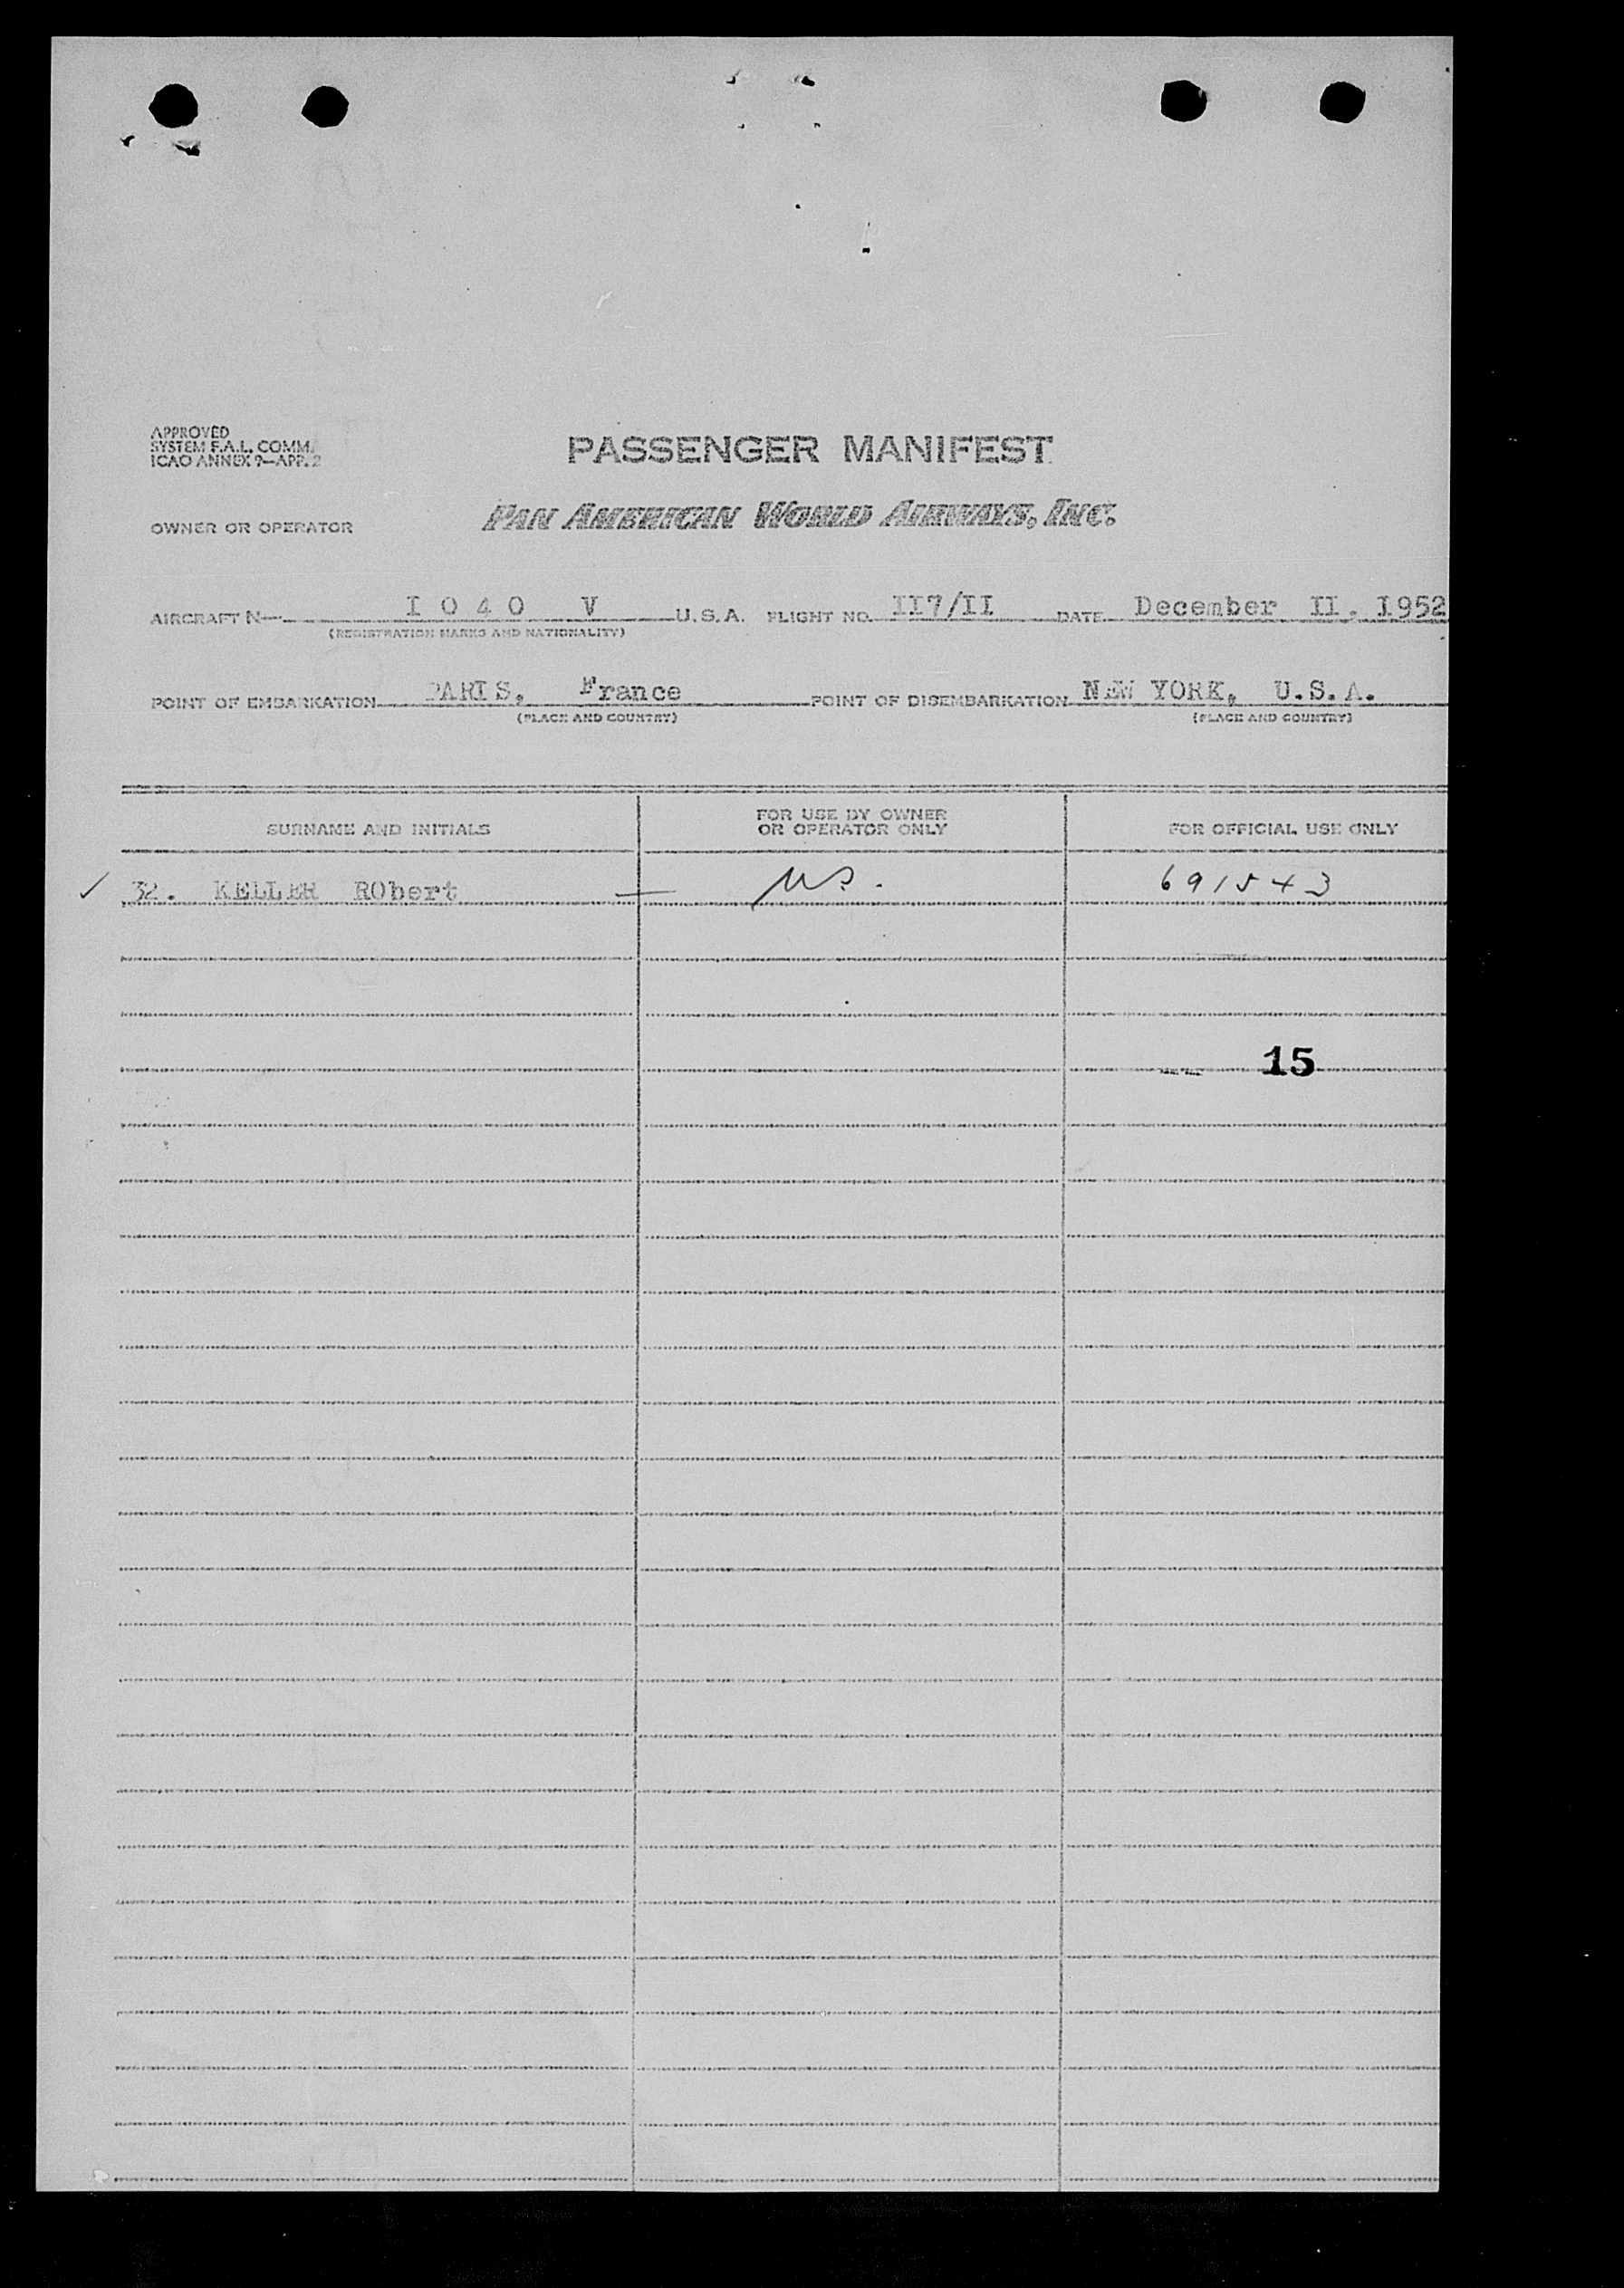 APPROVED
SYSTEM F.A.L. COMM.
ICAO ANNEX 9—APP. 2
PASSENGER MANIFEST
OWNER OR OPERATOR PAN AMERICAN WORLD AIRWAYS, INC.
AIRCRAFT N— I 0 4 0 V U.S.A. FLIGHT NO. II7/II DATE December II. I952
(REGISTRATION MARKS AND NATIONALITY)
POINT OF EMBARKATION PARIS, France POINT OF DISEMBARKATION NEW YORK, U.S.A.
(PLACE AND COUNTRY) (PLACE AND COUNTRY)
SURNAME AND INITIALS
FOR USE BY OWNER
OR OPERATOR ONLY
FOR OFFICIAL USE ONLY
✓ 32. KELLER RObert — 691543
15